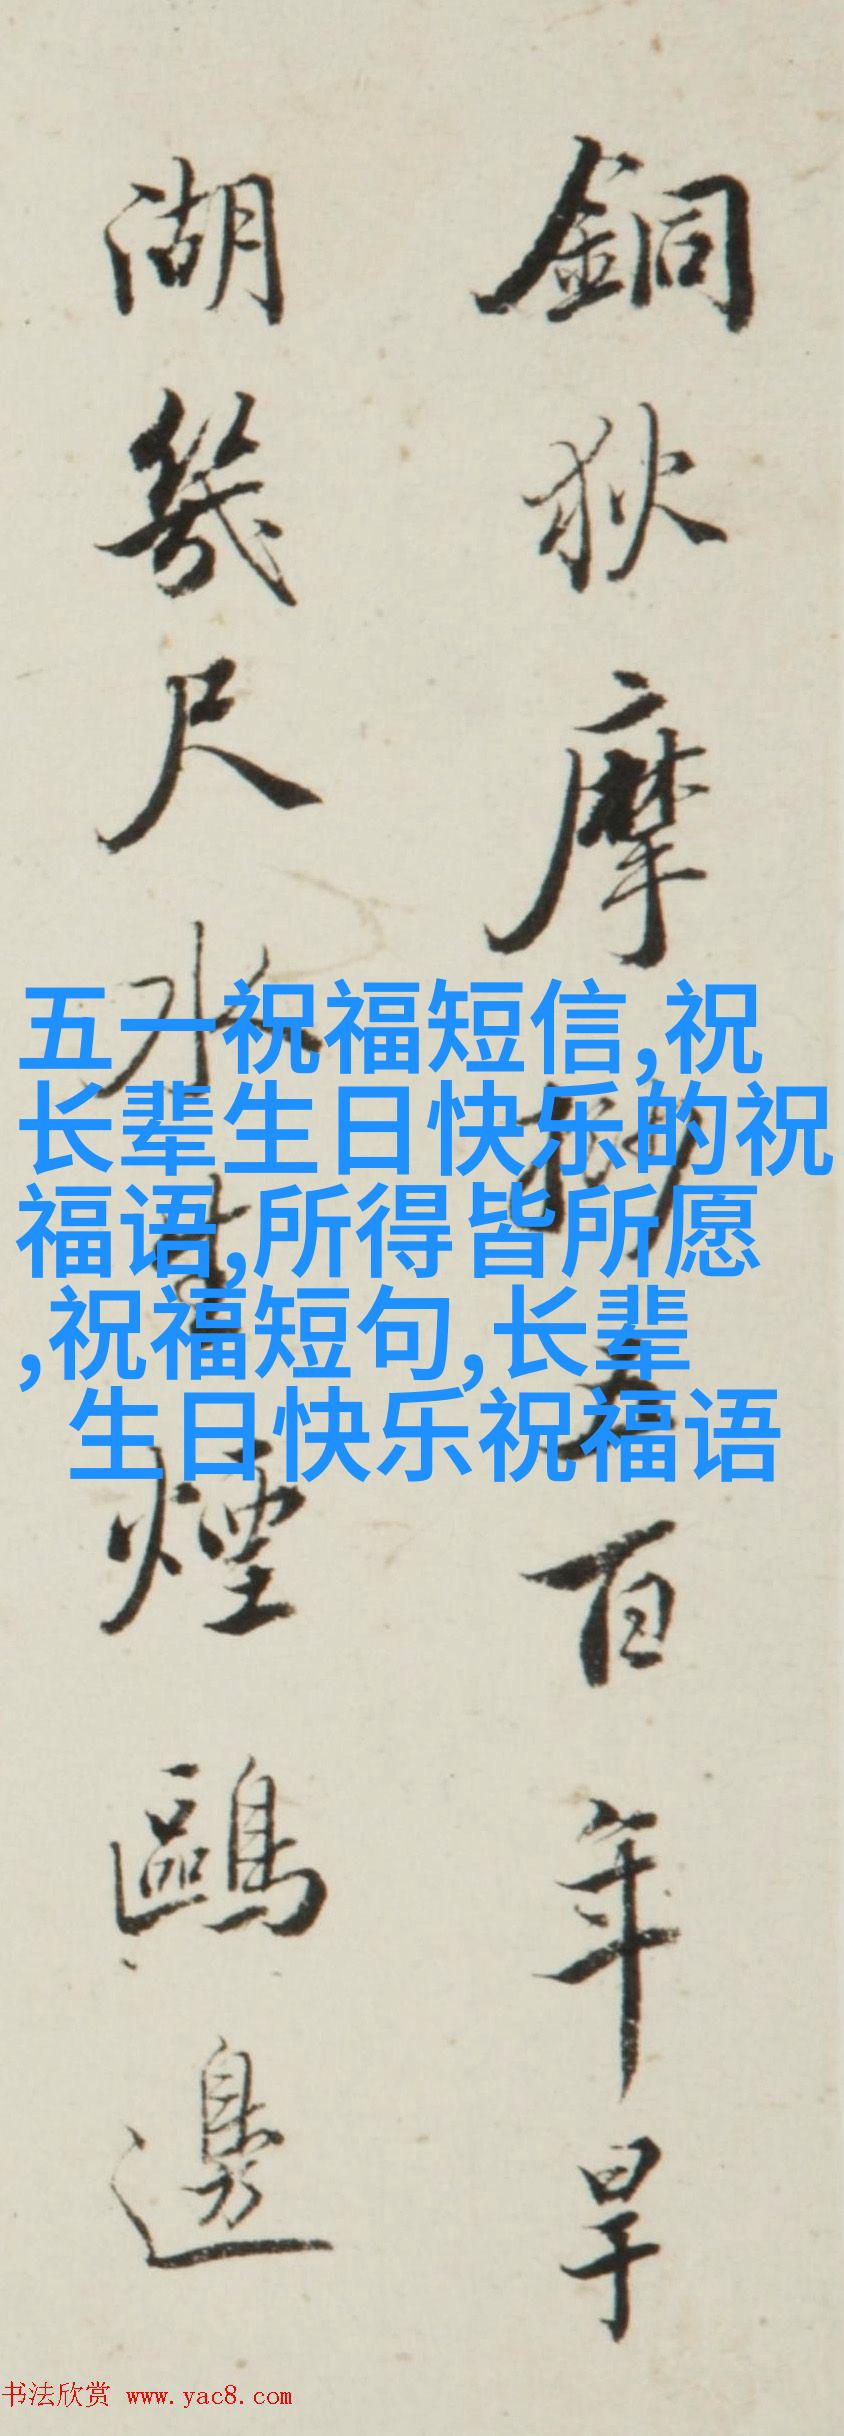 銅狄摩挱五百年旱
湖幾尺水
煙鷗邊
五一祝福短信,祝
长辈生日快乐的祝
福语,所得皆所愿
,祝福短句,长辈
生日快乐祝福语
书法欣赏 www.yac8.com